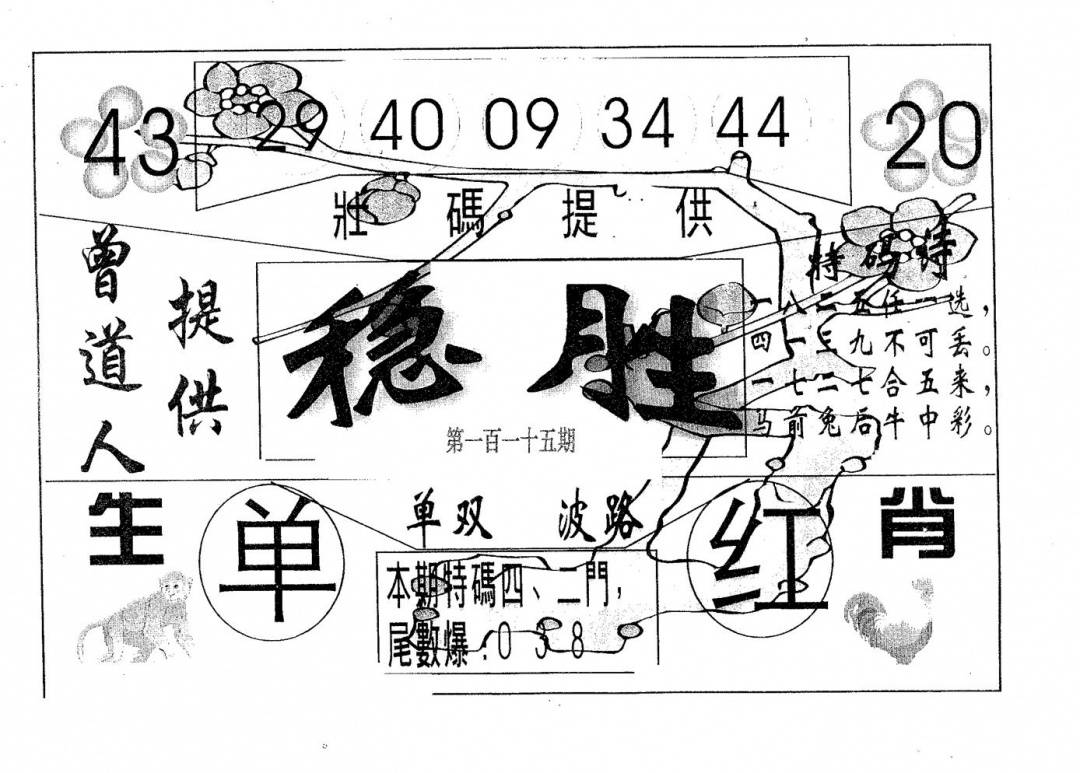 43 29 40 09 34 44 20
壯碼提供
曾道人
提供
稳胜
第一百一十五期
特码诗
一八二五任一选，
四一三九不可丢。
一七二七合五来，
马前兔后牛中彩。
生肖
单双 波路
单
红
本期特碼四、二門，
尾數爆:0 3 8